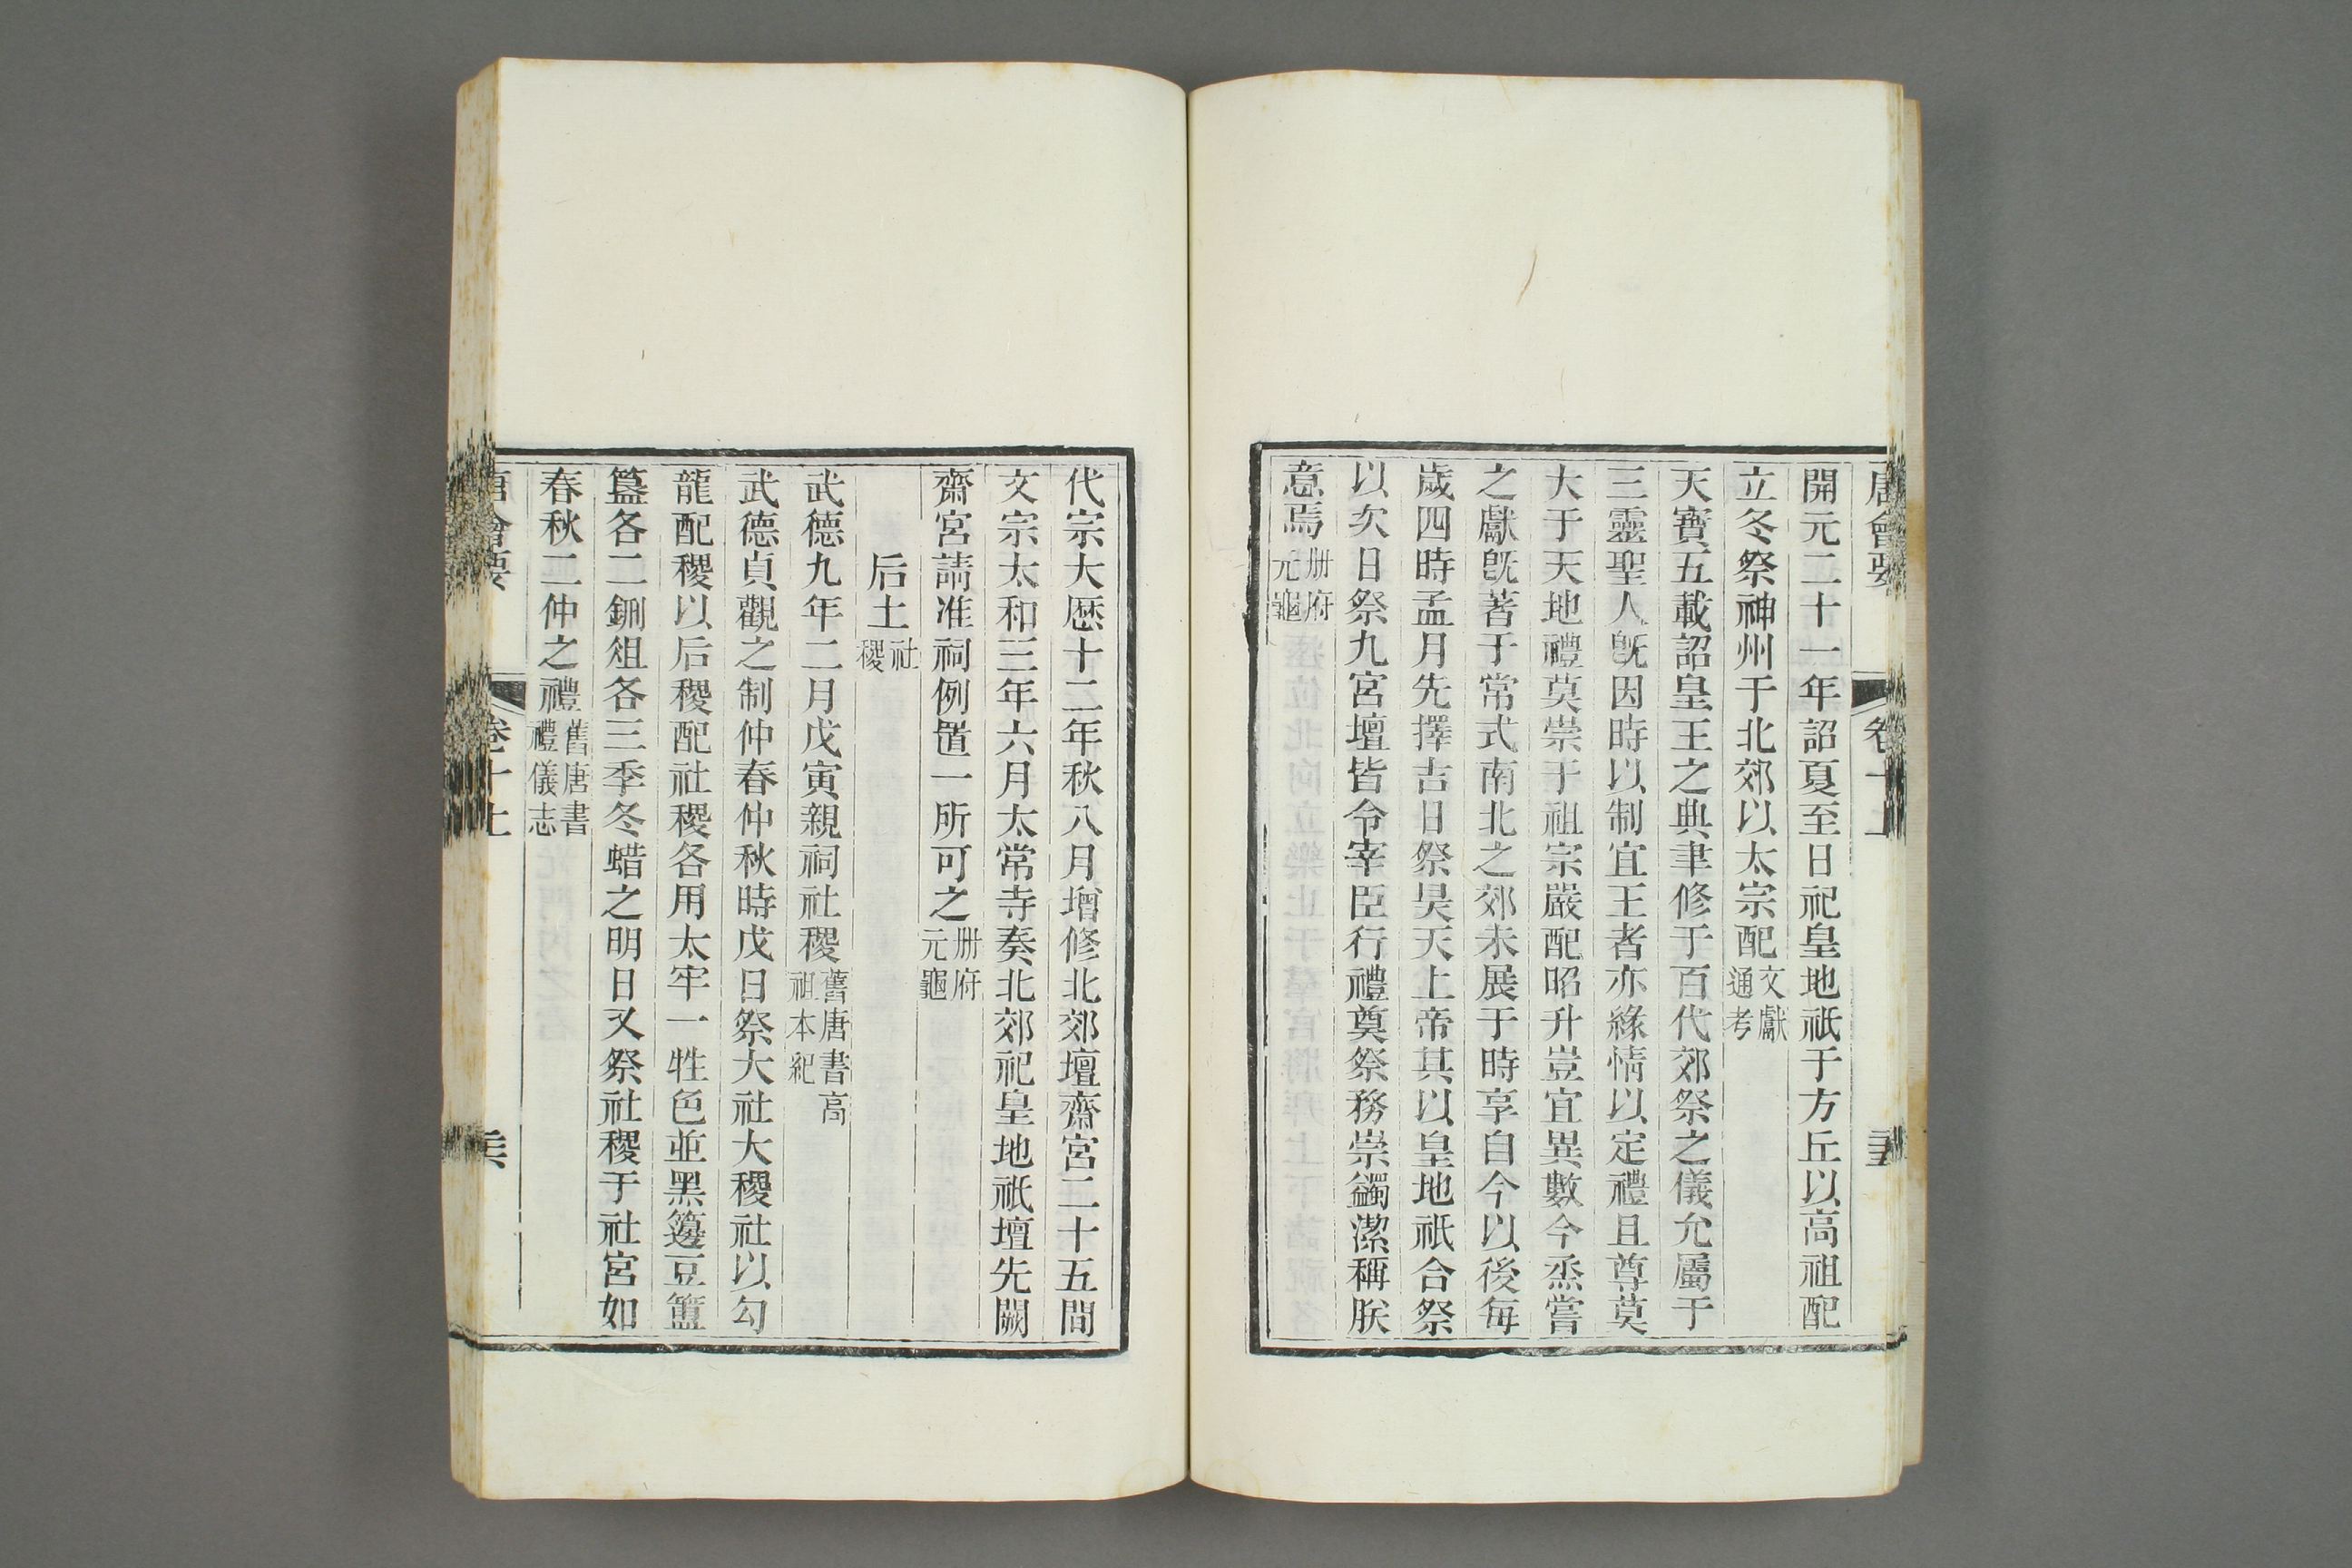 唐會要 卷十上
開元二十一年詔夏至日祀皇地祇于方丘以高祖配
立冬祭神州于北郊以太宗配文獻通考
天寶五載詔皇王之典聿修于百代郊祭之儀允屬于
三靈聖人既因時以制宜王者亦緣情以定禮且尊莫
大于天地禮莫崇于祖宗嚴配昭升豈宜異數今烝嘗
之獻既著于常式南北之郊未展于時享自今以後每
歲四時孟月先擇吉日祭昊天上帝其以皇地祇合祭
以次日祭九宮壇皆令宰臣行禮奠祭務崇蠲潔稱朕
意焉冊府元龜
代宗大歷十二年秋八月增修北郊壇齋宮二十五間
文宗太和三年六月太常寺奏北郊祀皇地祇壇先闕
齋宮請准祠例置一所可之冊府元龜
后土社稷
武德九年二月戊寅親祠社稷舊唐書高祖本紀
武德貞觀之制仲春仲秋時戊日祭大社大稷社以勾
龍配稷以后稷配社稷各用太牢一牲色並黑籩豆簠
簋各二鉶俎各三季冬蜡之明日又祭社稷于社宮如
春秋二仲之禮舊唐書禮儀志
唐會要 卷十上